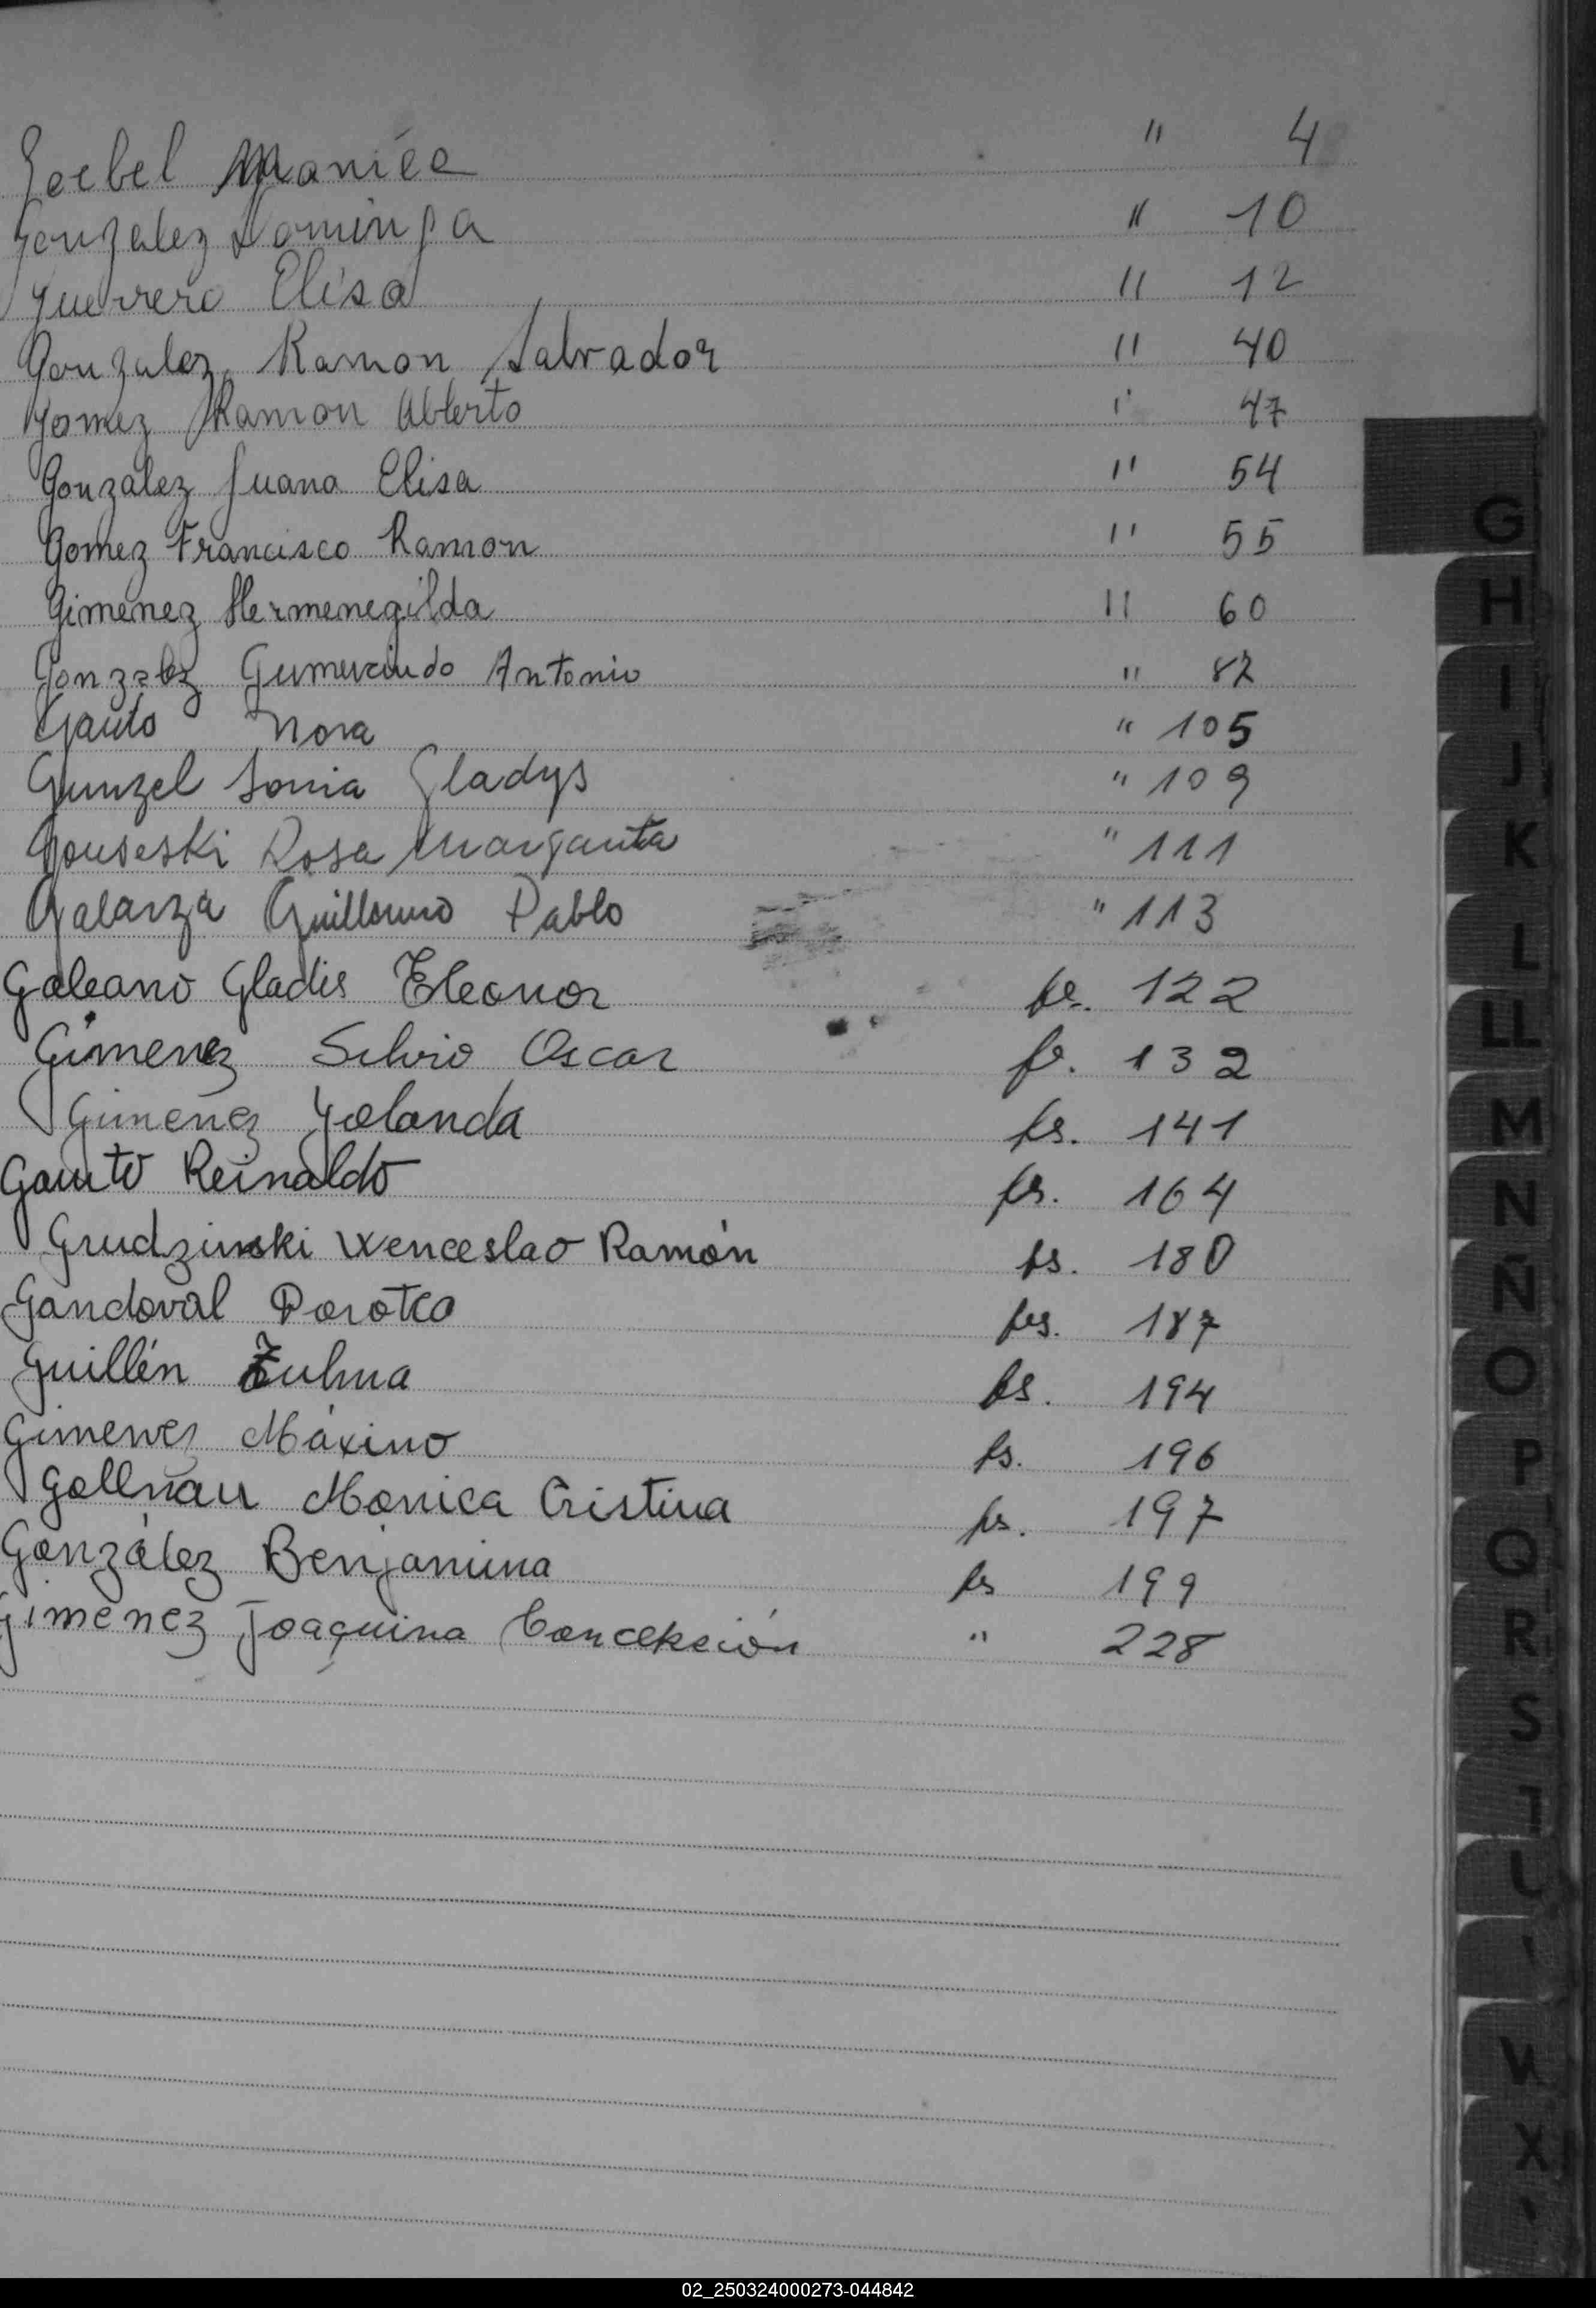 Goebel Maria " 4
Gonzalez Dominga " 10
Guerrero Elisa " 12
Gonzalez, Ramon Salvador " 40
Gomez Ramon Alberto " 47
Gonzalez Juana Elisa " 54
Gomez Francisco Ramon " 55
Gimenez Hermenegilda " 60
Gonzalez Gumercindo Antonio " 82
Gauto Nora " 105
Gunzel Sonia Gladys " 109
Rosa Margarita " 111
Galarza Guillermo Pablo " 113
Galeano Gladis Eleonor fs. 122
Gimenez Silvio Oscar fs. 132
Gimenez Yolanda fs. 141
Gauto Reinaldo fs. 164
Grudzinski Wenceslao Ramón fs. 180
Gandoval Dorotea fs. 187
Guillén Zulma fs. 194
Gimenez Máximo fs. 196
Gollnau Monica Cristina fs. 197
González Benjamina fs 199
Gimenez Joaquina Concepción " 228
G
H
I
J
K
L
LL
M
N
Ñ
O
P
Q
R
S
T
U
V
X
02_250324000273-044842